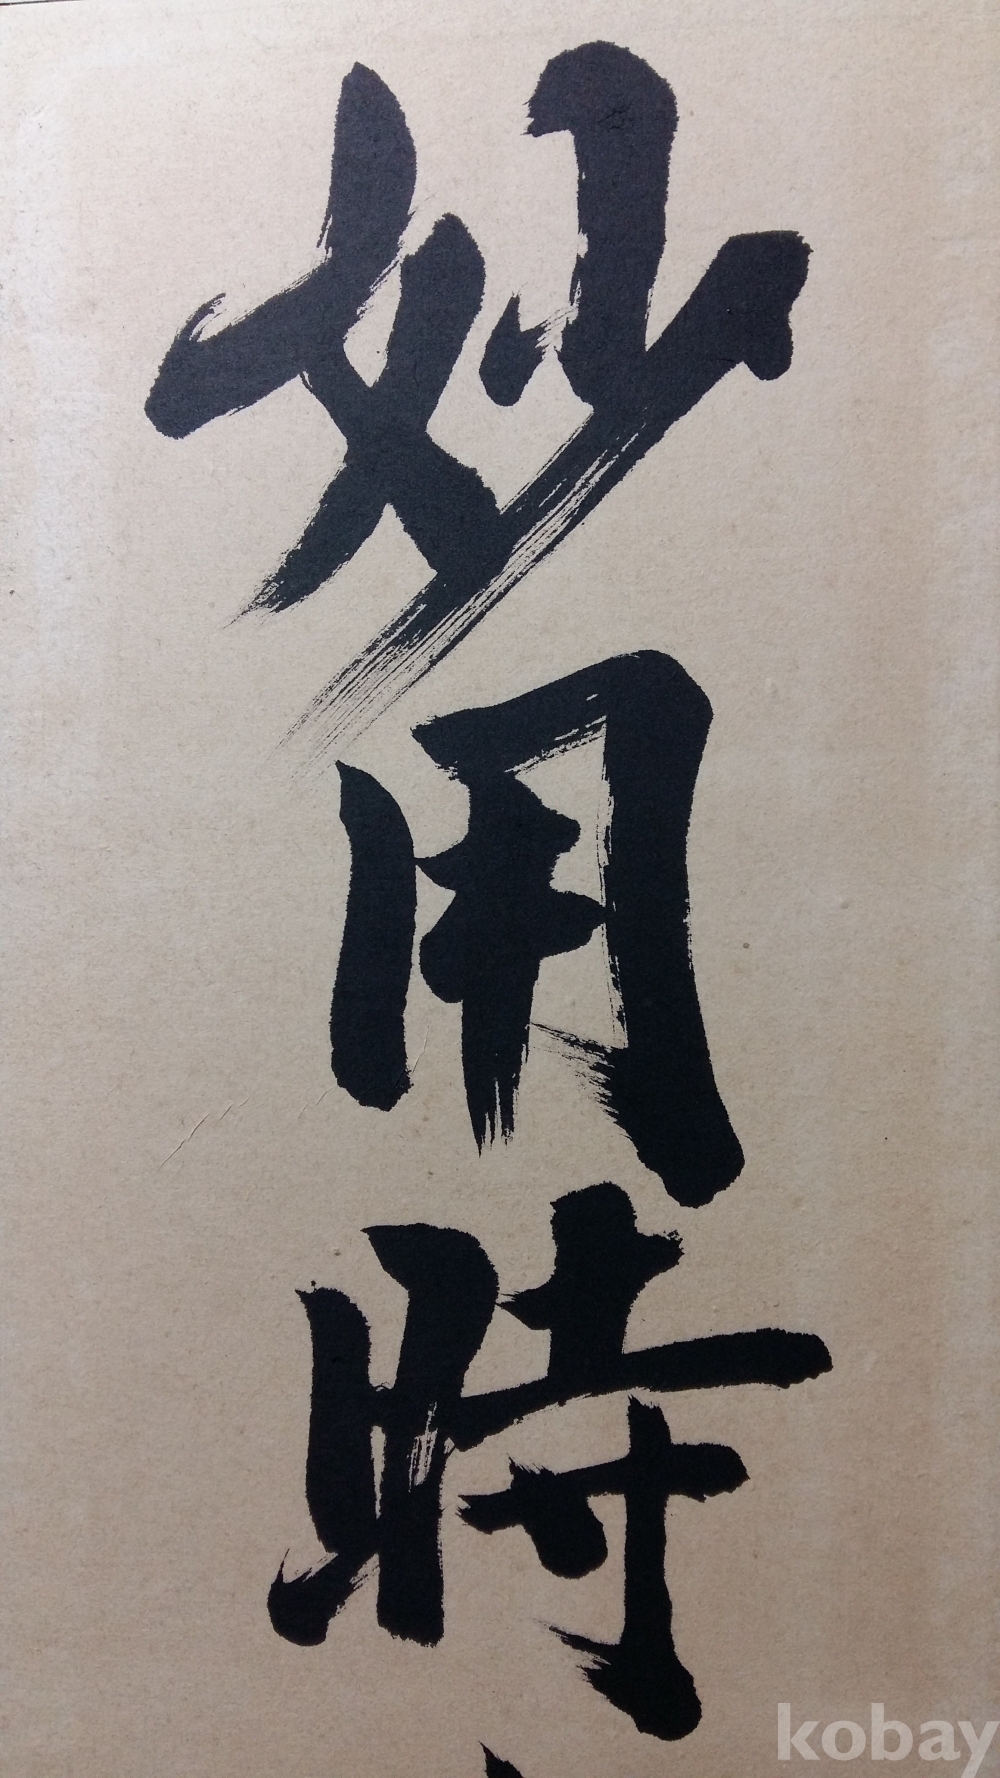 妙用時
kobay